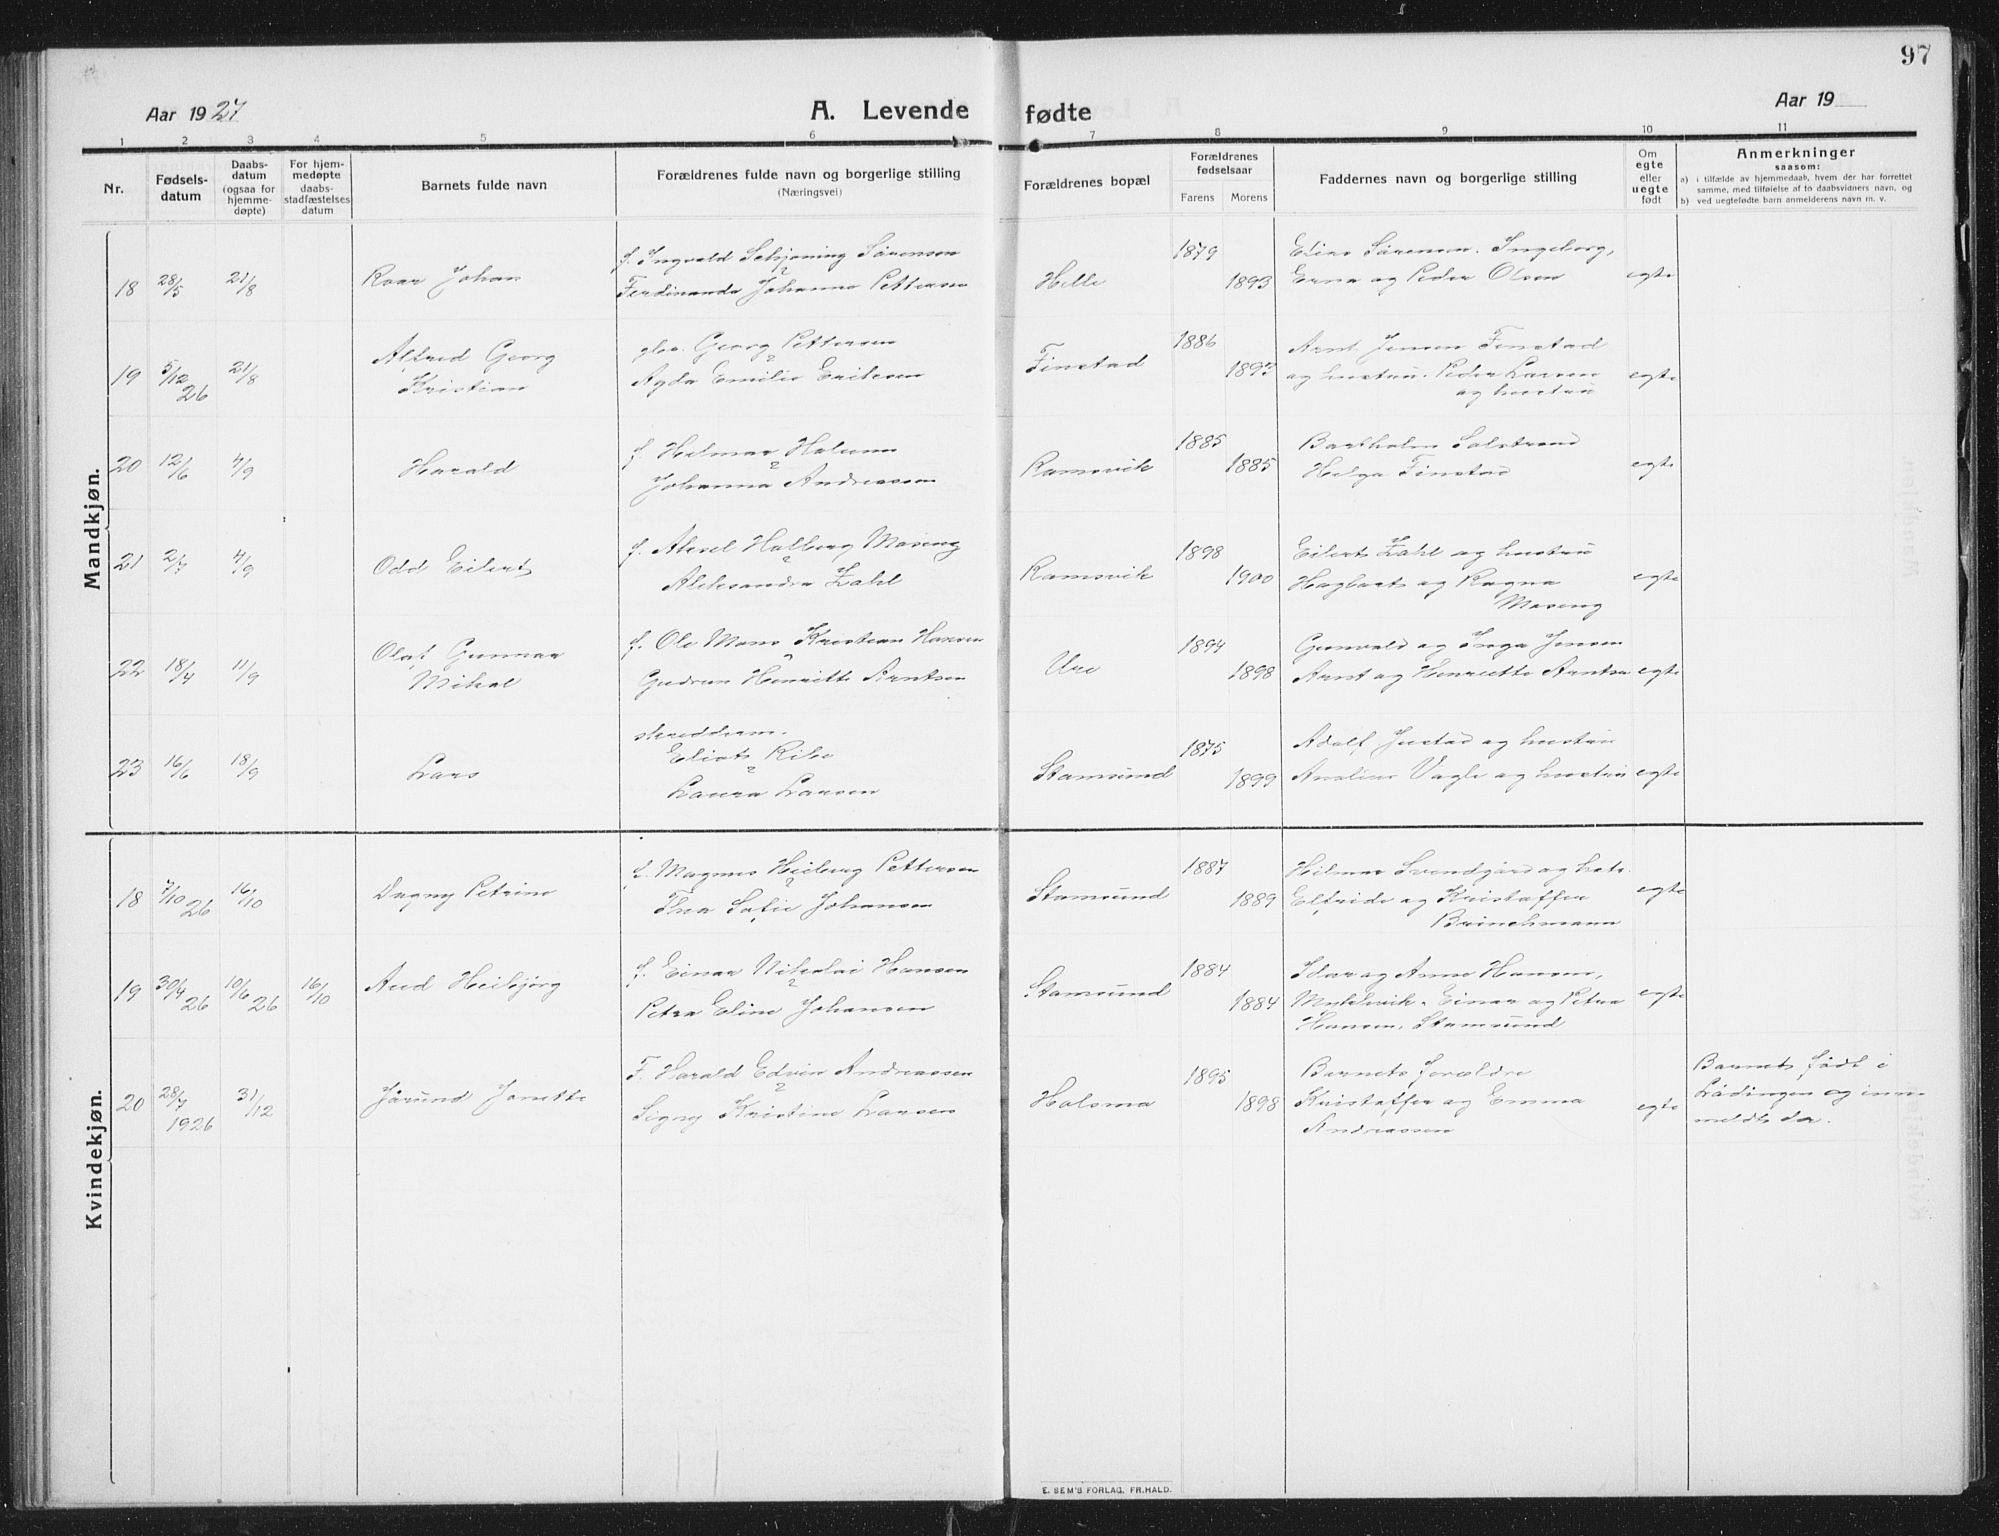 97
Aar 1927
A. Levende fødte
Aar 19
1 2 3 4 5 6 7 8 9 10 11
Nr.
Fødsels-
datum
Daabs-
datum
(ogsaa for
hjemme-
døpte)
For hjem-
medøpte
daabs-
stadfæstelses
datum
Barnets fulde navn
Forældrenes fulde navn og borgerlige stilling
(Næringsvei)
Forældrenes bopæl
Forældrenes
fødselsaar
Farens Morens
Faddernes navn og borgerlige stilling
Om
egte
eller
uegte
født
Anmerkninger
saasom:
a) i tilfælde av hjemmedaab, hvem der har forrettet
samme, med tilføielse af to daabsvidners navn, og
b) ved uegtefødte barn anmelderens navn m. v.
Mandkjøn.
18 28/5 21/8 Roar Johan
f. Ingvald Schjøning Sørensen
Ferdinanda Johanna Pettersen
Helle 1879 1893
Sørensen. Ingeborg,
Erna og Peder Olsen
egte
19 5/12 26 21/8 Alfred Georg
Kristian
gbr. Georg Pettersen
Agda Emilie Eriksen
Finstad 1886 1893
Arnt Jensen Finstad
og hustru. Peder Larsen
og hustru
egte
20 12/6 4/9 Harald
f. Hilmar Halsen
Johanna Andreassen
Ramsvik 1885 1885
Bartholm Solstrand
Helga Finstad
egte
21 2/7 4/9 Odd Eilert
f. Aksel Halberg Maseng
Aleksandra Zahl
Ramsvik 1898 1900
Eilert Zahl og hustru
Hagbart og Ragna
Maseng
egte
22 18/4 11/9 Olaf Gunnar
Mikal
f. Ole Mons Kristian Hansen
Gudrun Henritte Arntsen
Ure 1894 1898
Gunvald og Inga Jensen
Arnt og Henriette Arntsen
egte
23 16/6 18/9 Lars
skreddern.
Eliot Ribe
Laura Larsen
Stamsund 1875 1899
Adolf Justad og hustru
Vagle og hustru
egte
Kvindekjøn.
18 7/10 26 16/10 Dagny Petrine
f. Magnus Heiberg Pettersen
Thea Sofie Johansen
Stamsund 1887 1889
Hilmar Svendgård og hstr.
Elfride og Kristoffer
Brinchmann
egte
19 30/4 26 10/6 26 16/10 Aud Heibjørg
f. Einar Nikolai Hansen
Petra Eline Johansen
Stamsund 1884 1884
Idar og Anne Hansen,
Myklevik. Einar og Petra
Hansen, Stamsund
egte
20 28/7 1926 31/12 Jørund Janette
F. Harald Edvin Andreassen
Signy Kristine Larsen
Holsma 1895 1898
Barnets forældre
Kristoffer og Emma
Andreassen
egte
Barnet født i
Lødingen og inn-
meldt da.
E. SEM'S FORLAG, FR.HALD.